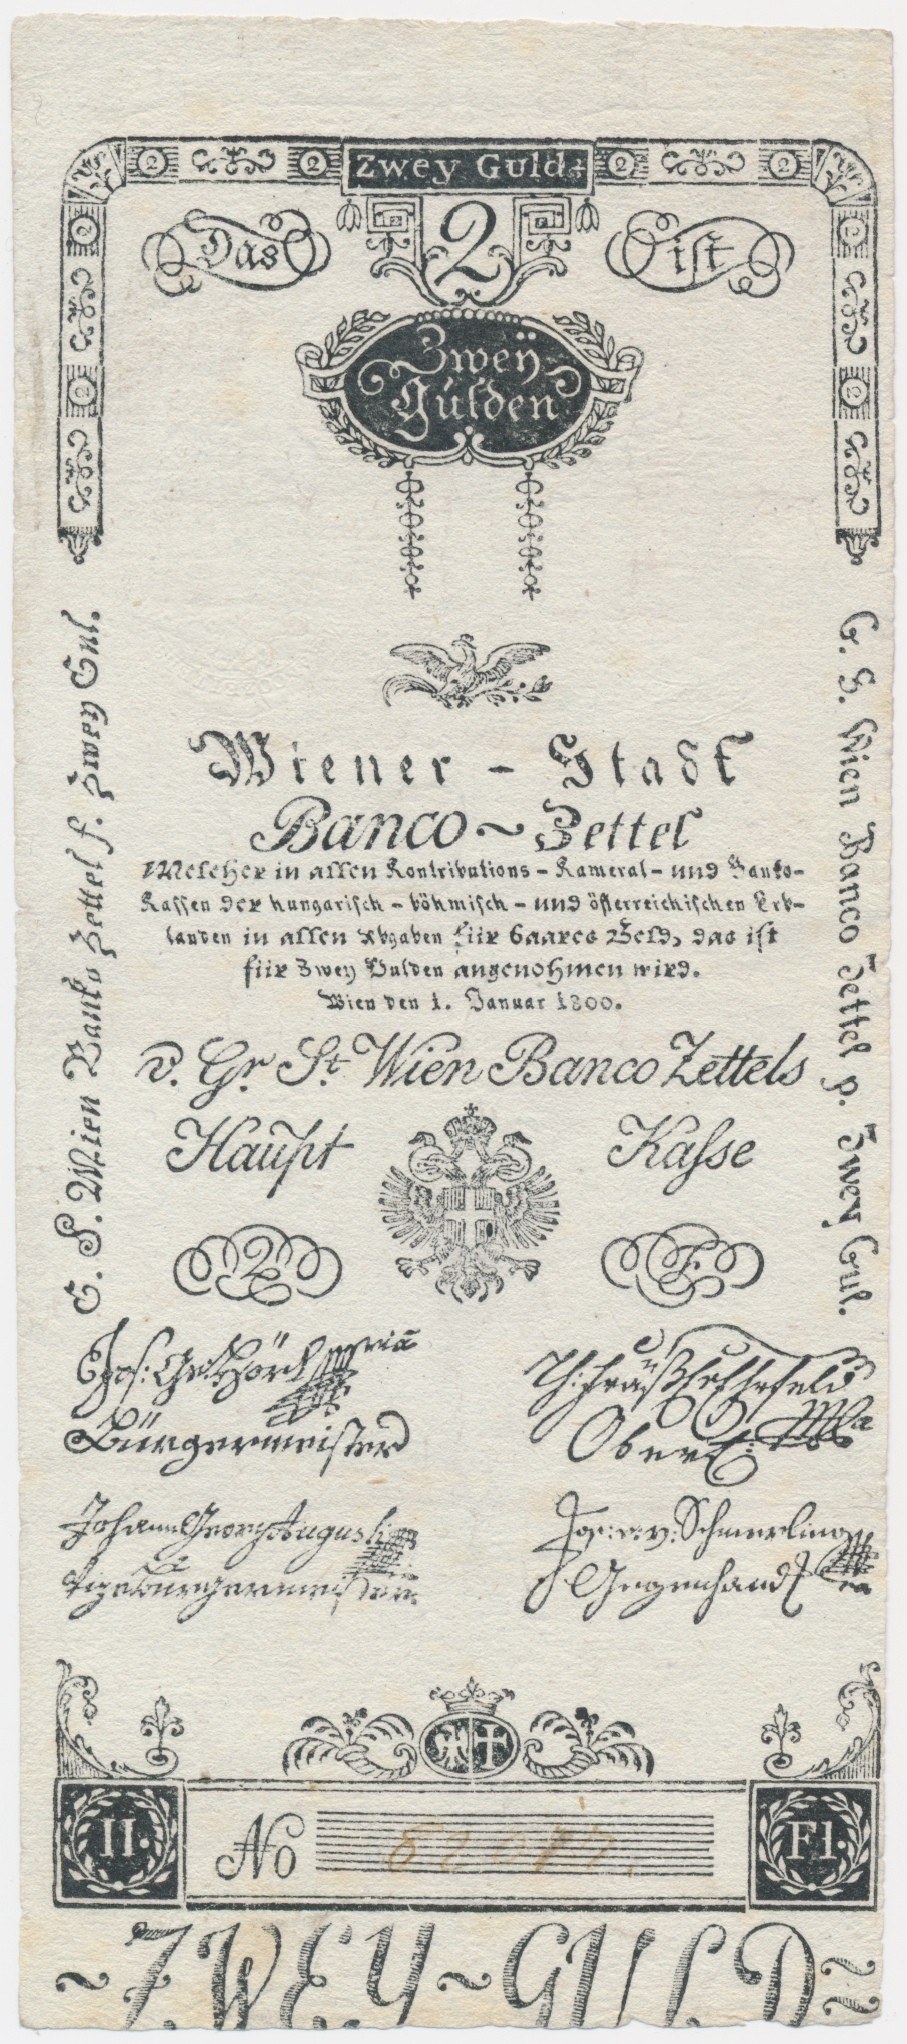 Zwey Guld
2 2 2 2
Das 2 ist
Zweÿ
Gulden
Wiener - Stadt
Banco ~ Zettel
Welcher in allen Kontributions - Kameral - und Banko-
Kassen der hungarisch - böhmisch - und österreichischen Erb-
landen in allen Abgaben für baares Geld, das ist
für Zwey Gulden angenohmen wird.
Wien den 1. Januar 1800.
v. Gr St Wien Banco Zettels
Haupt Kasse
G. S. Wien Banko Zettel f. Zwey Gul.
G. S. Wien Banco Zettel p. Zwey Gul.
2 F
Jos: Geo: Hörl
Bürgermeister
Johann Georg Augusti
Vizebürgermeister
Jos: v: Schmerling
Gegenhand
II. Fl.
No 62077.
~ ZWEY ~ GULD